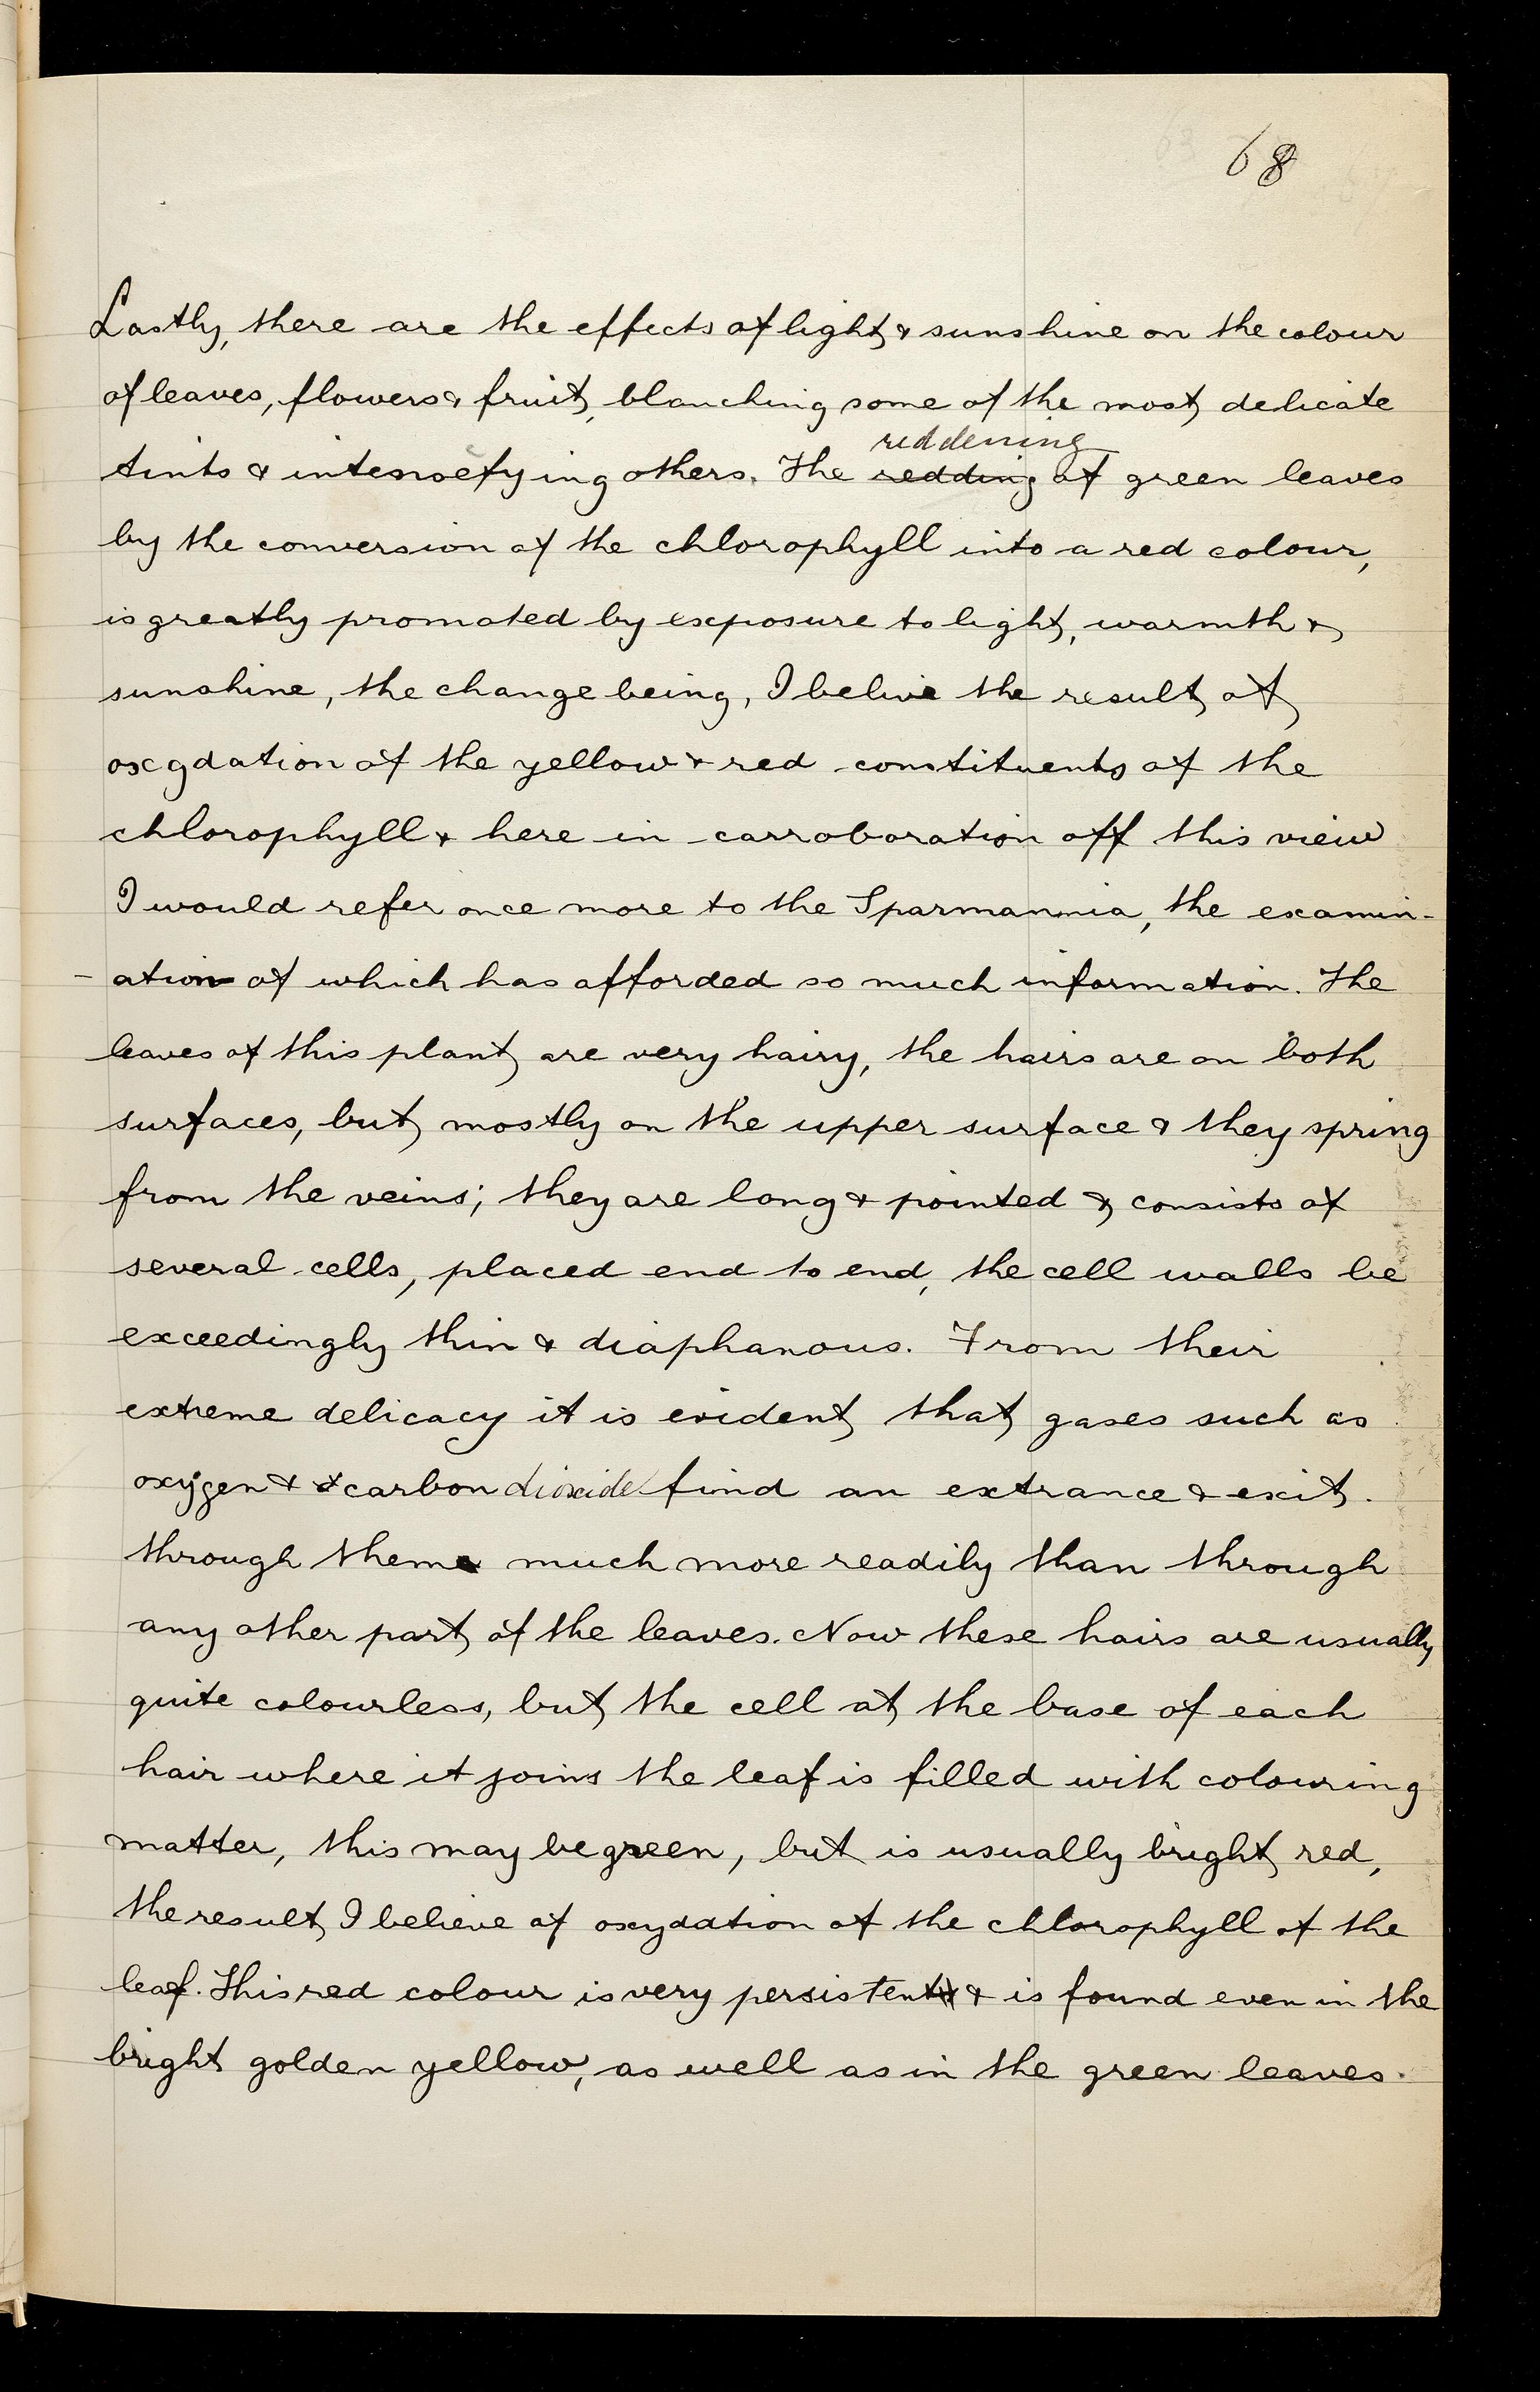 68
Lastly, there are the effects of light & sunshine on the colour
of leaves, flowers & fruit, blanching some of the most delicate
reddening
tints & intensefying others. The redding of green leaves
by the conversion of the chlorophyll into a red colour,
is greatly promoted by exposure to light, warmth &
sunshine, the change being, I belive the result of
oxydation of the yellow & red constituents of the
chlorophyll & here in carroboration off this view
I would refer once more to the Sparmannia, the examin-
- ation of which has afforded so much information. The
leaves of this plant are very hairy, the hairs are on both
surfaces, but mostly on the upper surface & they spring
from the veins; they are long & pointed & consists of
several cells, placed end to end, the cell walls be
exceedingly thin & diaphanous. From their
extreme delicacy it is evident that gases such as
oxygen & carbon dioxide find an extrance & exit.
through them much more readily than through
any other part of the leaves. Now these hairs are usually
quite colourless, but the cell at the base of each
hair where it joins the leaf is filled with colouring
matter, this may be green, but is usually bright red,
the result I believe of oxydation of the chlorophyll of the
leaf. This red colour is very persistent & is found even in the
bright golden yellow, as well as in the green leaves.